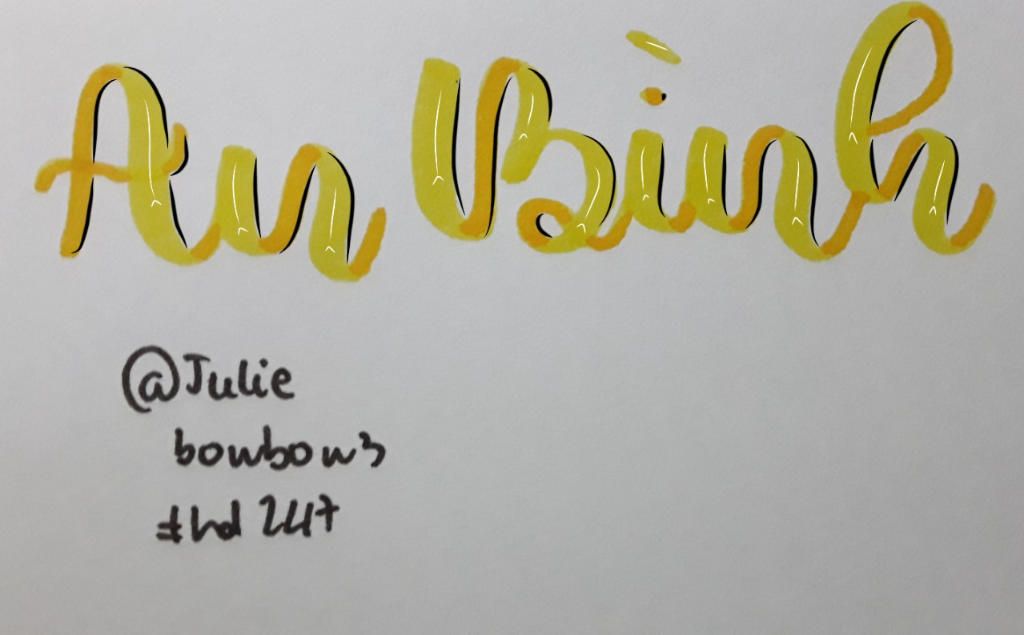 An Bình
@Julie
bowbow3
#hd 247